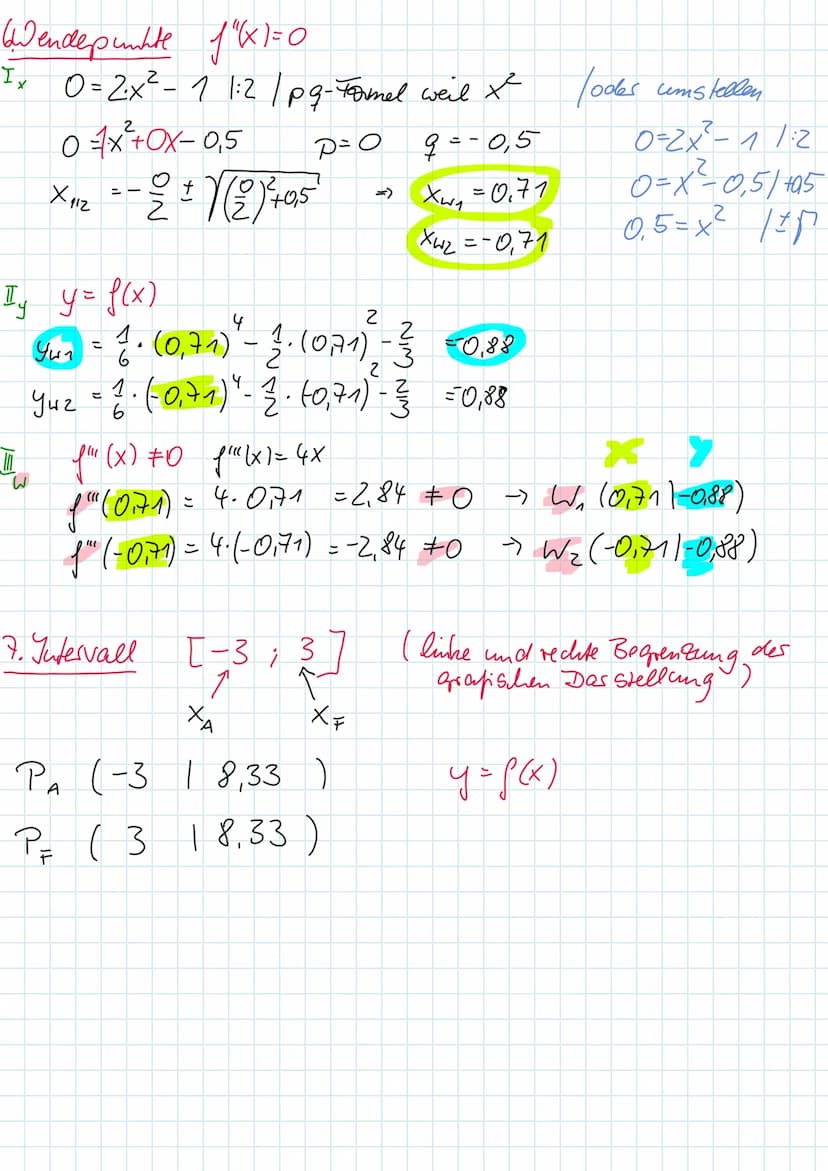 6. Wendepunkte f''(x)=0
I x 0=2x²-1 |:2 / pq-Formel weil x² /oder umstellen
0=1x²+0x-0,5 p=0 q=-0,5 0=2x²-1 /:2
x₁/₂ = -0/2 ± √((0/2)²+0,5) => x_W1 = 0,71 0=x²-0,5/+0,5
x_W2 = -0,71 0,5=x² /±√
II y y=f(x)
y_W1 = 1/6·(0,71)⁴-1/2·(0,71)²-2/3 =-0,88
y_W2 = 1/6·(-0,71)⁴-1/2·(-0,71)²-2/3 =-0,88
III W f'''(x)≠0 f'''(x)=4x x y
f'''(0,71) = 4·0,71 =2,84 ≠0 → W₁ (0,71|-0,88)
f'''(-0,71) = 4·(-0,71) =-2,84 ≠0 → W₂ (-0,71|-0,88)
7. Intervall [-3 ; 3] (linke und rechte Begrenzung des
grafischen Darstellung)
x_A x_F
P_A (-3 | 8,33 ) y=f(x)
P_F ( 3 | 8,33 )